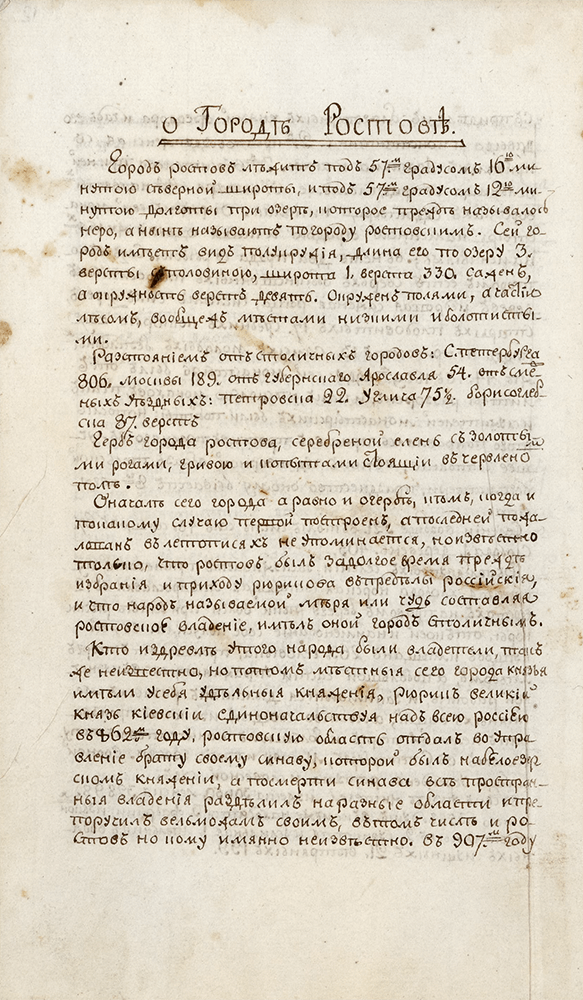 О Городѣ Ростовѣ.
Городъ ростовъ лѣжитъ подъ 57.мъ градусомъ 16ю ми-
нутою сѣверной широты, и подъ 57.мъ градусомъ 12ю ми-
нутою долготы при озерѣ, которое преждѣ называлось
неро, а нынѣ называютъ по городу ростовскимъ. Сей го-
родъ имѣетъ видъ полукружія, длина его по озеру 3.
версты с половиною, широта 1. верста 330. саженъ,
а окружность верстъ девять. Окруженъ полями, а части
лѣсомъ, вообщежъ мѣстами низкими и болотисты
ми.
Разстояніемъ отъ столичныхъ городовъ: С. петербурга
806. Москвы 189. отъ губернскаго Ярославля 54. отъ смѣ
ныхъ уѣздныхъ: петровска 22. Углича 75½. борисоглеб
ска 87. верстъ
Гербъ города ростова, серебреной елень съ золоты
ми рогами, гривою и копытами стоящіи въ червлено
полѣ.
О началѣ сего города а равно и о гербѣ, кѣмъ, когда и
по какому случаю первой построенъ, а последней пожа-
лованъ въ летописяхъ не упоминается, но извѣстно
только, что ростовъ былъ задолгое время преждѣ
избранія и приходу рюрикова въ предѣлы россійскія,
и что народъ называемой мѣря или чудь составляя
ростовское владение, имѣлъ оной городъ столичнымъ.
Кто издревлѣ у того народа были владетели, такъ
же неизвестно, но потомъ мѣстныя сего города князья
имѣли у себя удѣльныя княженія, рюрикъ великій
князь кіевскіи единоначальствуя надъ всею россіею
въ 862мъ году, ростовскую область отдалъ во упра
вленіе брату своему синаву, которой былъ на белоезер
скомъ княженіи, а посмерти синава всѣ простран
ныя владения раздѣлилъ на разные области и пре
поручилъ вельможамъ своимъ, вѣтомъ числѣ и ро-
стовъ но кому имянно неизвѣстно. Въ 907.мъ году